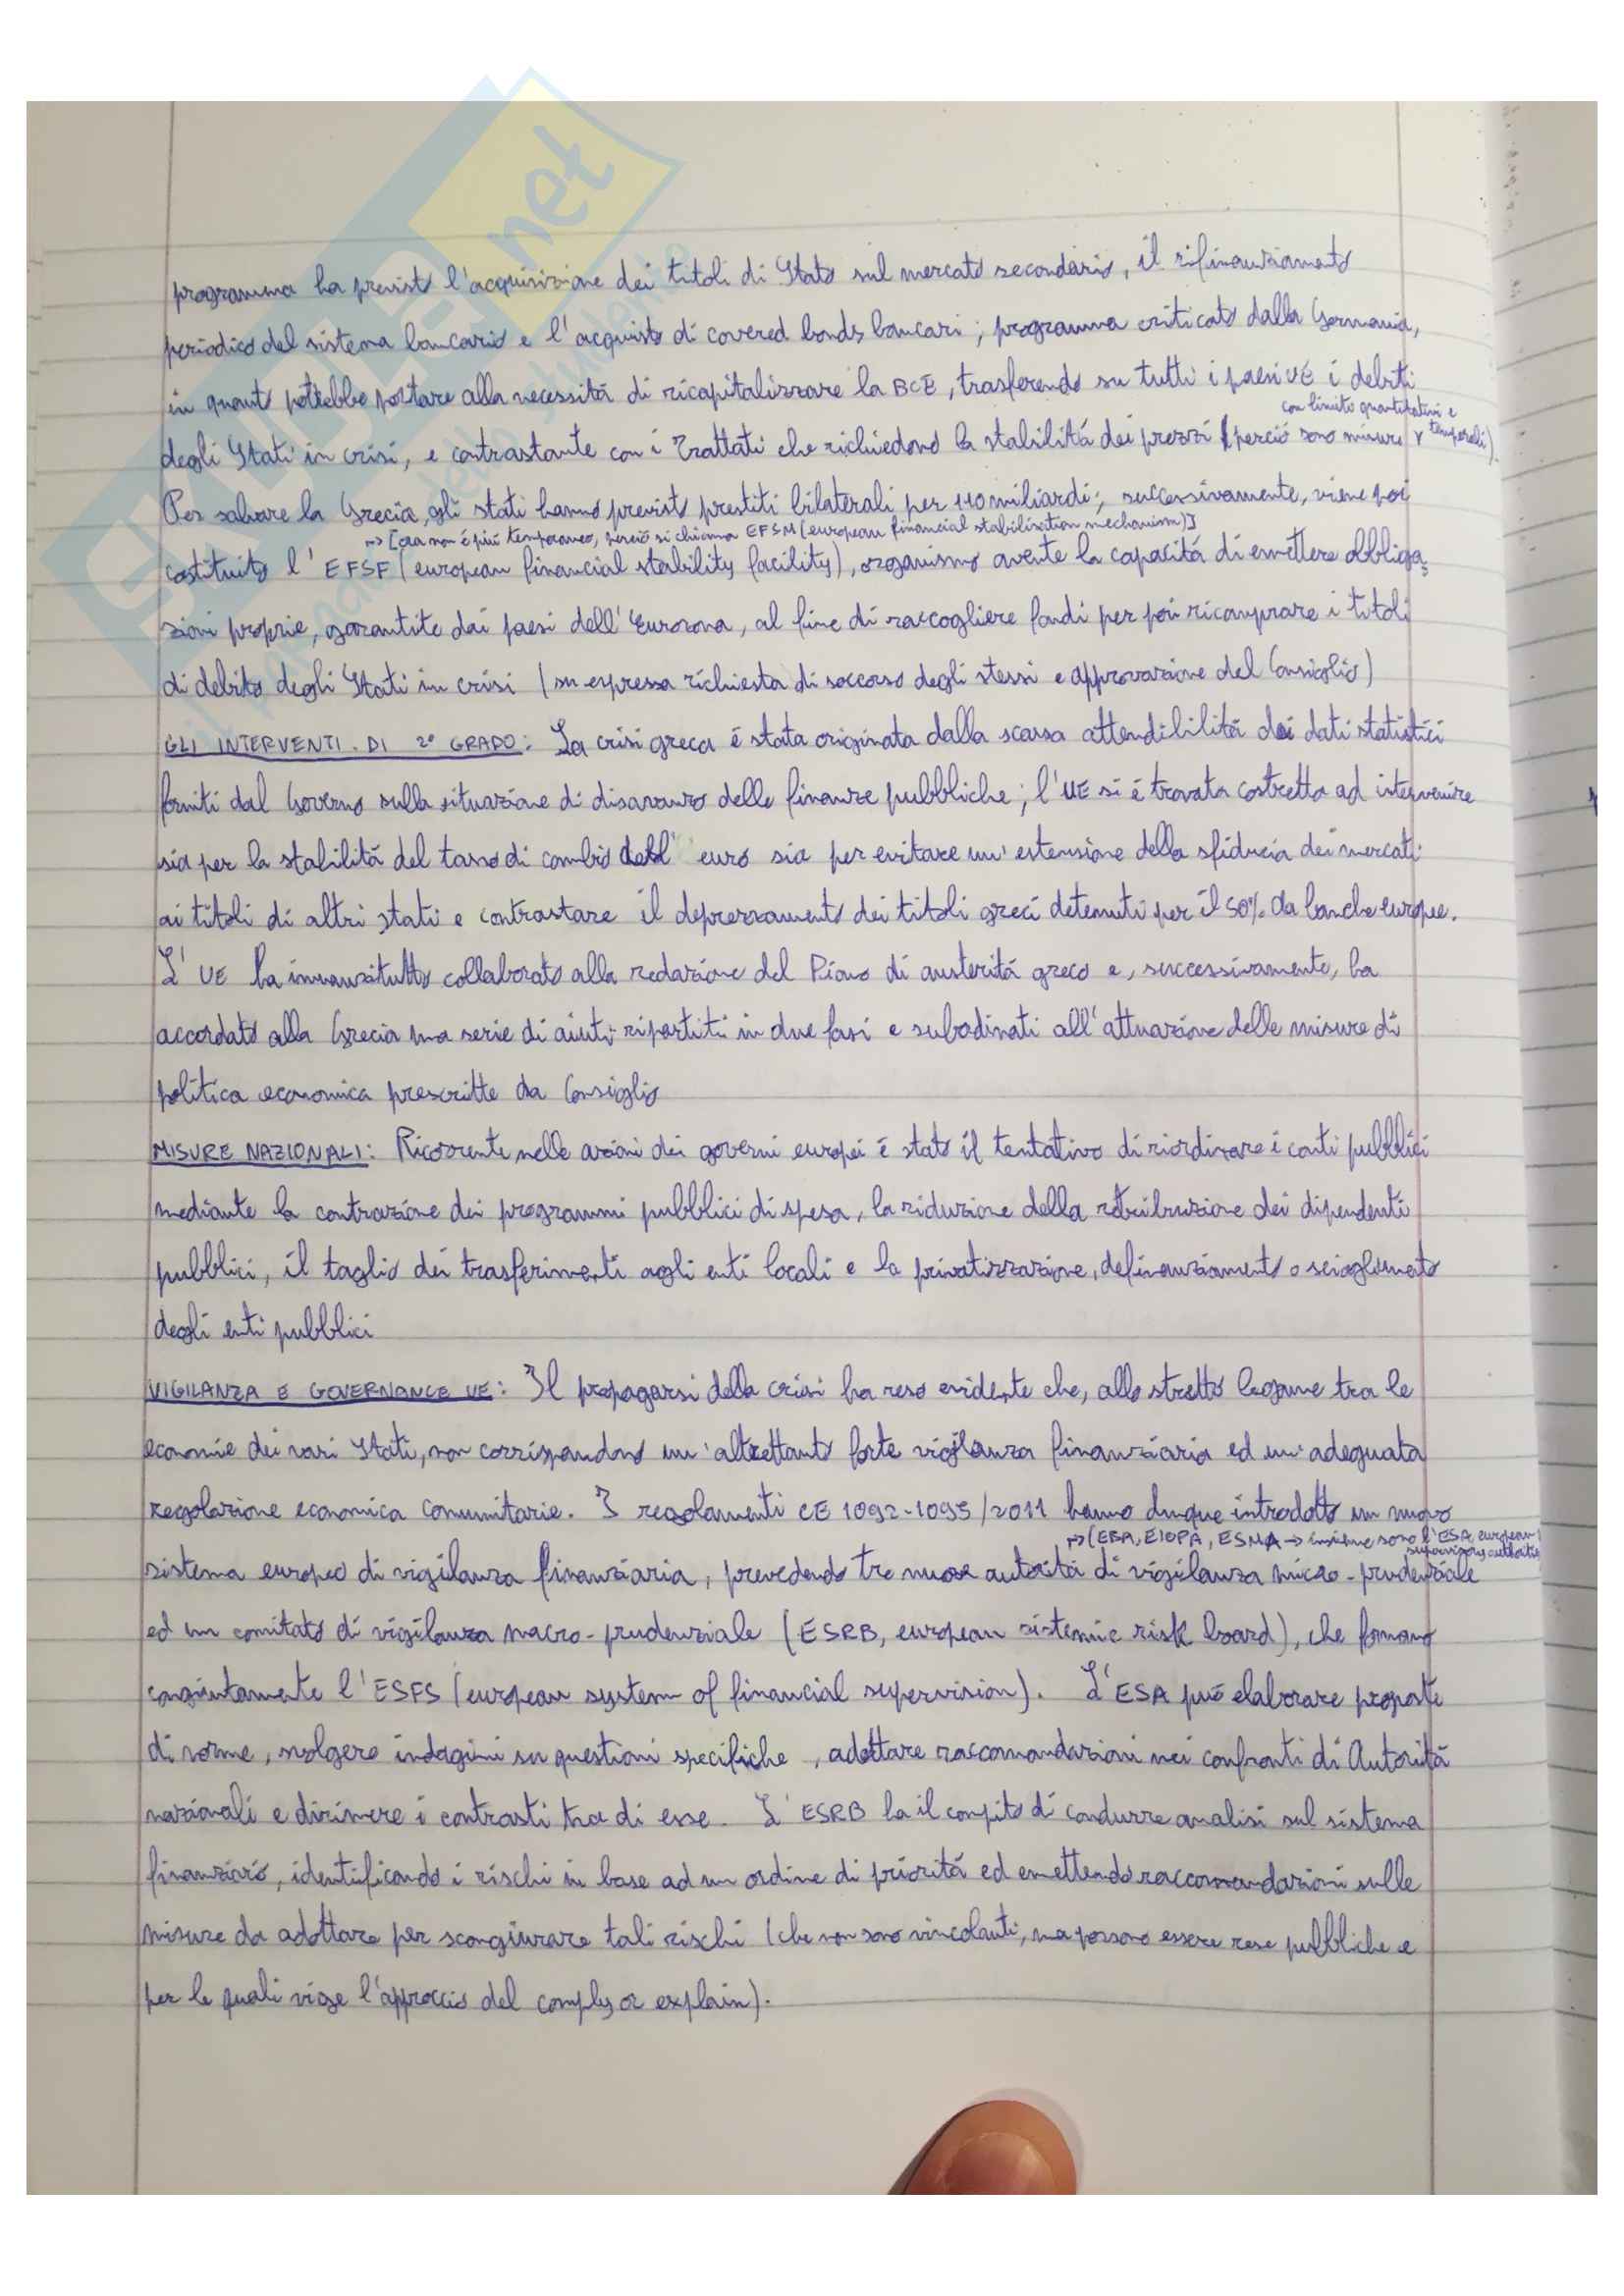 programma ha previsto l'acquisizione dei titoli di Stato sul mercato secondario, il rifinanziamento
periodico del sistema bancario e l'acquisto di covered bonds bancari; programma criticato dalla Germania,
in quanto potrebbe portare alla necessitá di ricapitalizzare la BCE, trasferendo su tutti i paesi UE i debiti
con limiti quantitativi e
temporali)
degli Stati in crisi, e contrastante con i Trattati che richiedono la stabilitá dei prezzi (perció sono misure
Per salvare la Grecia, gli stati hanno previsto prestiti bilaterali per 110 miliardi; successivamente, viene poi
→ [ora non é piú temporaneo, perció si chiama EFSM (european financial stabilisation mechanism)]
costituito l'EFSF (european financial stability facility), organismo avente la capacitá di emettere obbliga
zioni proprie, garantite dai paesi dell'Eurozona, al fine di raccogliere fondi per poi ricomprare i titoli
di debito degli Stati in crisi (su espressa richiesta di soccorso degli stessi e approvazione del Consiglio)
GLI INTERVENTI DI 2° GRADO: La crisi greca é stata originata dalla scarsa attendibilitá dei dati statistici
forniti dal Governo sulla situazione di disavanzo delle finanze pubbliche; l'UE si é trovata costretta ad intervenire
sia per la stabilitá del tasso di cambio dell' euro sia per evitare un'estensione della sfiducia dei mercati
ai titoli di altri stati e contrastare il deprezzamento dei titoli greci detenuti per il 50% da banche europee.
L'UE ha innanzitutto collaborato alla redazione del Piano di austeritá greco e, successivamente, ha
accordato alla Grecia una serie di aiuti ripartiti in due fasi e subodinati all'attuazione delle misure di
politica economica prescritte da Consiglio
MISURE NAZIONALI: Ricorrente nelle azioni dei governi europei é stato il tentativo di riordinare i conti pubblici
mediante la contrazione dei programmi pubblici di spesa, la riduzione della retribuzione dei dipendenti
pubblici, il taglio dei trasferimenti agli enti locali e la privatizzazione, definanziamento o scioglimento
degli enti pubblici
VIGILANZA E GOVERNANCE UE: Il propagarsi della crisi ha reso evidente che, allo stretto legame tra le
economie dei vari Stati, non corrispondono un'altrettanto forte vigilanza finanziaria ed un'adeguata
regolazione economica comunitarie. I regolamenti CE 1092-1095/2011 hanno dunque introdotto un nuovo
→ (EBA, EIOPA, ESMA → insieme sono l'ESA, european
supervisory authorities
sistema europeo di vigilanza finanziaria, prevedendo tre nuove autoritá di vigilanza micro-prudenziale
ed un comitato di vigilanza macro-prudenziale (ESRB, european sistemic risk board), che formano
congiuntamente l'ESFS (european system of financial supervision). L'ESA puó elaborare proposte
di norme, svolgere indagini su questioni specifiche, adottare raccomandazioni nei confronti di Autoritá
nazionali e dirimere i contrasti tra di esse. L'ESRB ha il compito di condurre analisi sul sistema
finanziario, identificando i rischi in base ad un ordine di prioritá ed emettendo raccomandazioni sulle
misure da adottare per scongiurare tali rischi (che non sono vincolanti, ma possono essere rese pubbliche e
per le quali vige l'approccio del comply or explain).
net